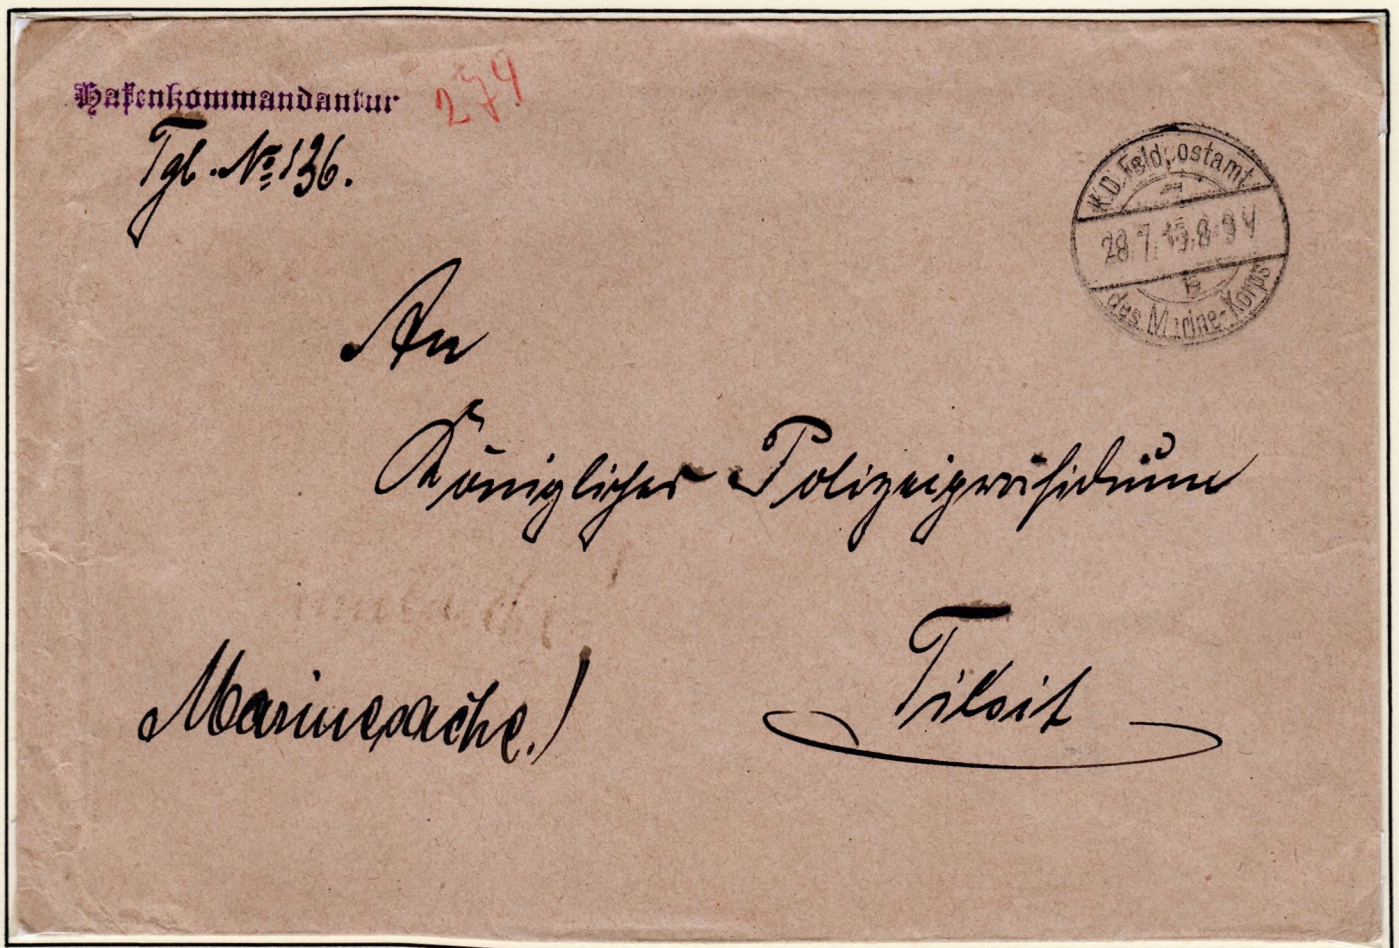 Hafenkommandantur
274
Tgb. No 136.
K.D. Feldpostamt
28.7.15.8-9 V
des Marine-Korps
An
Königliches Polizeipräsidium
Tilsit
Marinesache!